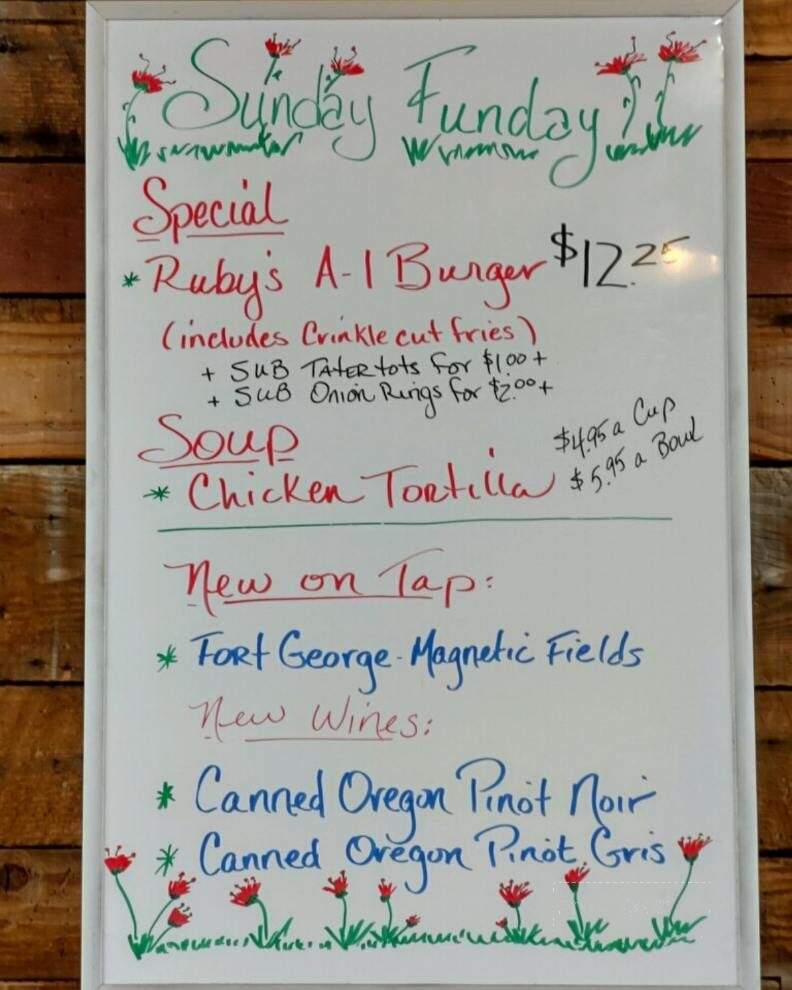 Sunday Funday
Special
* Ruby's A-1 Burger $12.25
(includes Crinkle cut fries)
+ SUB TATER tots for $1.00+
+ SUB Onion Rings for $2.00+
Soup
$4.95 a Cup
* Chicken Tortilla $5.95 a Bowl
New on Tap:
* Fort George - Magnetic Fields
New Wines:
* Canned Oregon Pinot Noir
* Canned Oregon Pinot Gris